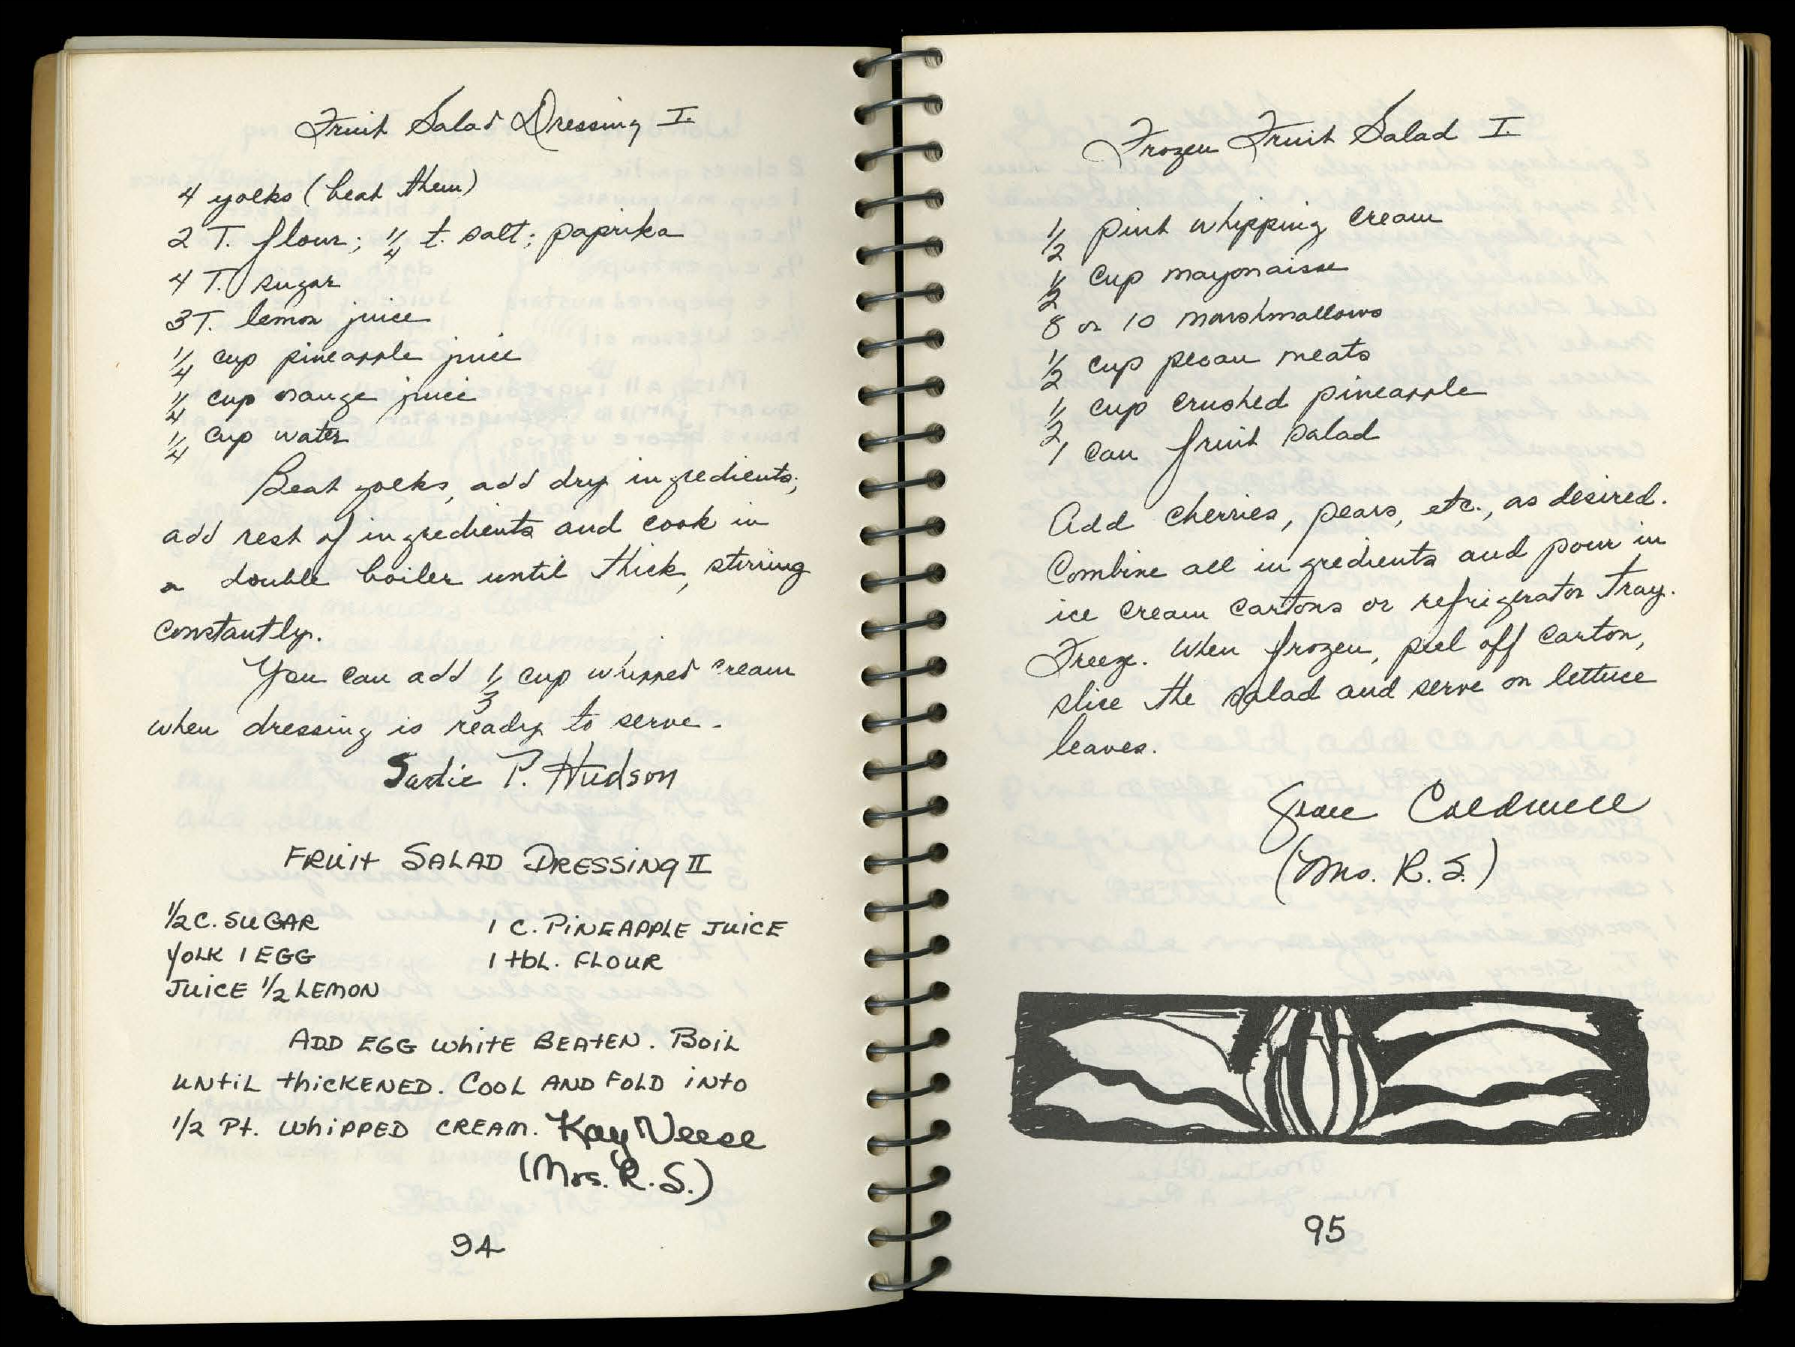 Fruit Salad Dressing I.
4 yolks (beat them)
2 T. flour; 1/4 t. salt; paprika
4 T. sugar
3T. lemon juice
1/4 cup pineapple juice
1/4 cup orange juice
1/4 cup water
Beat yolks, add dry ingredients,
add rest of ingredients and cook in
a double boiler until thick, stirring
constantly.
You can add 1/3 cup whipped cream
when dressing is ready to serve.
P. Hudson
FRUIT SALAD DRESSING II
1/2 C. SUGAR 1 C. PINEAPPLE JUICE
YOLK 1 EGG 1 tbL. FLOUR
JUICE 1/2 LEMON
ADD EGG WHITE BEATEN. BOIL
UNTIL THICKENED. COOL AND FOLD INTO
1/2 Pt. WHIPPED CREAM. Kay Neese
(Mrs. R. S.)
94
Frozen Fruit Salad I.
1/2 pint whipping cream
1/2 cup mayonaisse
8 or 10 marshmallows
1/2 cup pecan meats
1/2 cup crushed pineapple
1 can fruit salad
Add cherries, pears, etc., as desired.
Combine all ingredients and pour in
ice cream cartons or refrigerator tray.
Freeze. When frozen, peel off carton,
slice the salad and serve on lettuce
leaves.
Grace Caldwell
(Mrs. R. S.)
95